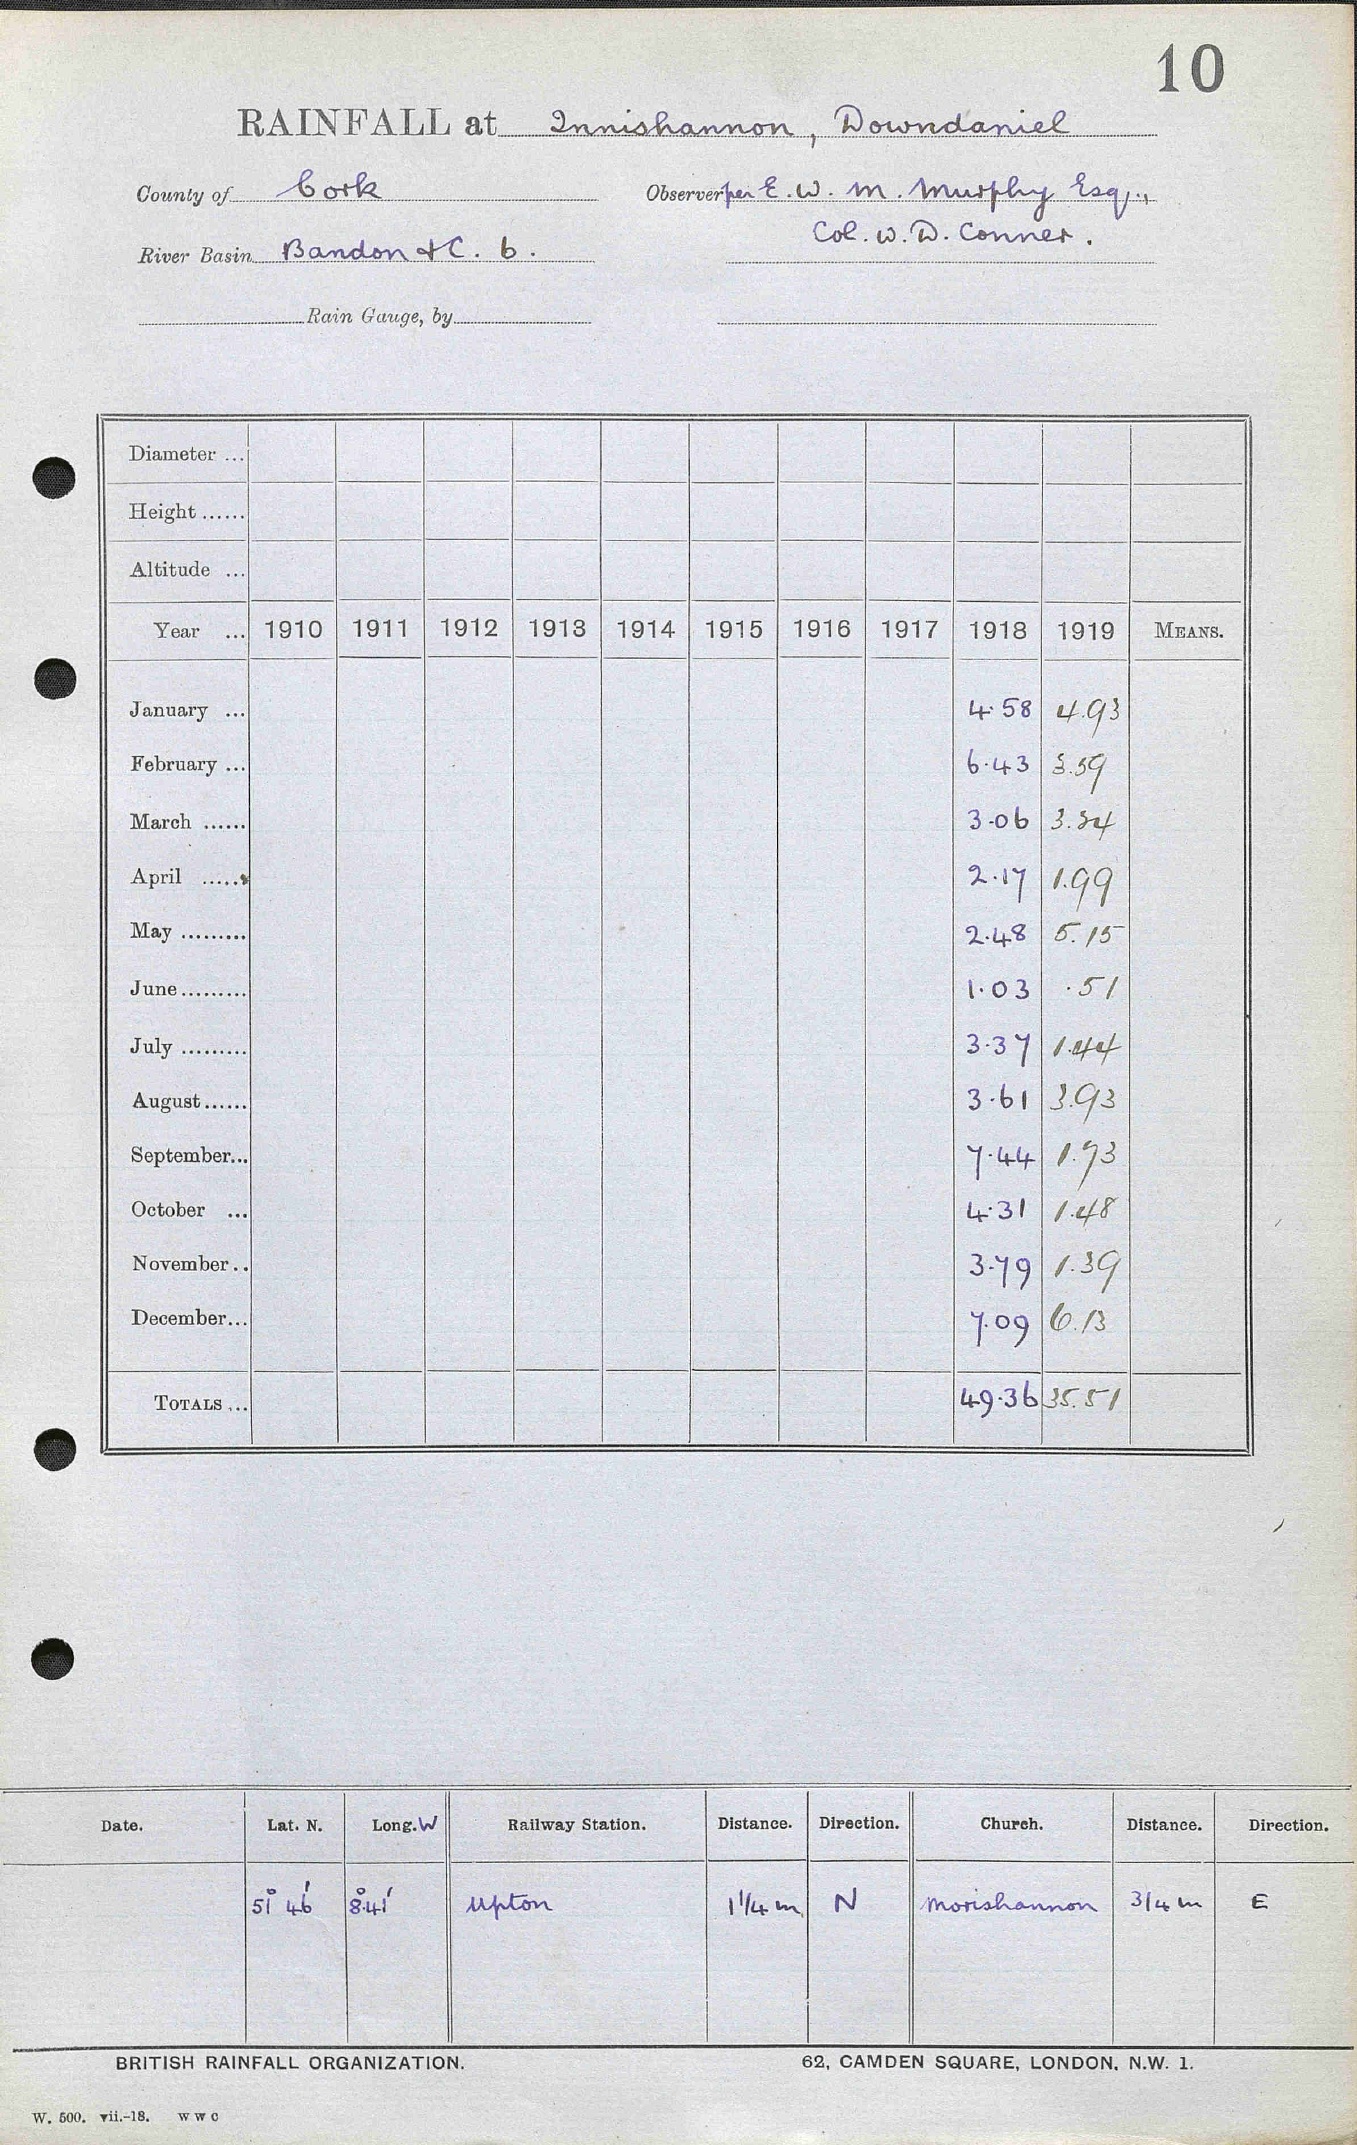 10
RAINFALL at Innishannon, Downdaniel
County of Cork Observer per E. W. M. Murphy Esq.,
Col. W. D. Conner.
River Basin Bandon &C. 6.
Rain Gauge, by
Diameter ...
Height ......
Altitude ...
Year ... 1910 1911 1912 1913 1914 1915 1916 1917 1918 1919 MEANS.
January ... 4.58 4.93
February ... 6.43 3.59
March ...... 3.06 3.24
April ...... 2.17 1.99
May ......... 2.48 5.15
June ......... 1.03 .51
July ......... 3.37 1.44
August ...... 3.61 3.93
September... 7.44 1.73
October ... 4.31 1.48
November .. 3.79 1.39
December... 7.09 6.13
TOTALS ... 49.36 35.51
Date. Lat. N. Long. W Railway Station. Distance. Direction. Church. Distance. Direction.
51° 46' 8° 41' Upton 1 1/4 m N Morishannon 3/4 m E
BRITISH RAINFALL ORGANIZATION. 62, CAMDEN SQUARE, LONDON, N.W. 1.
W. 500. vii.-18. W W C